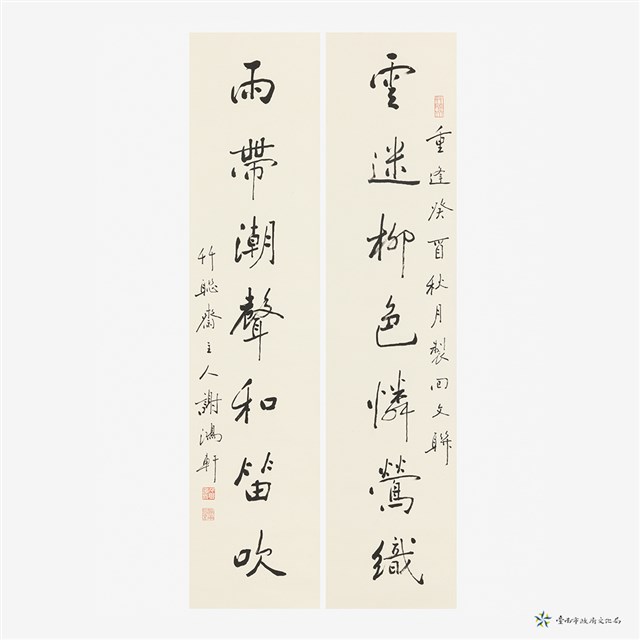 重逢癸酉秋月製回文聯
雲迷柳色憐鶯織
雨帶潮聲和笛吹
竹聯齋主人謝鴻軒
臺南市政府文化局